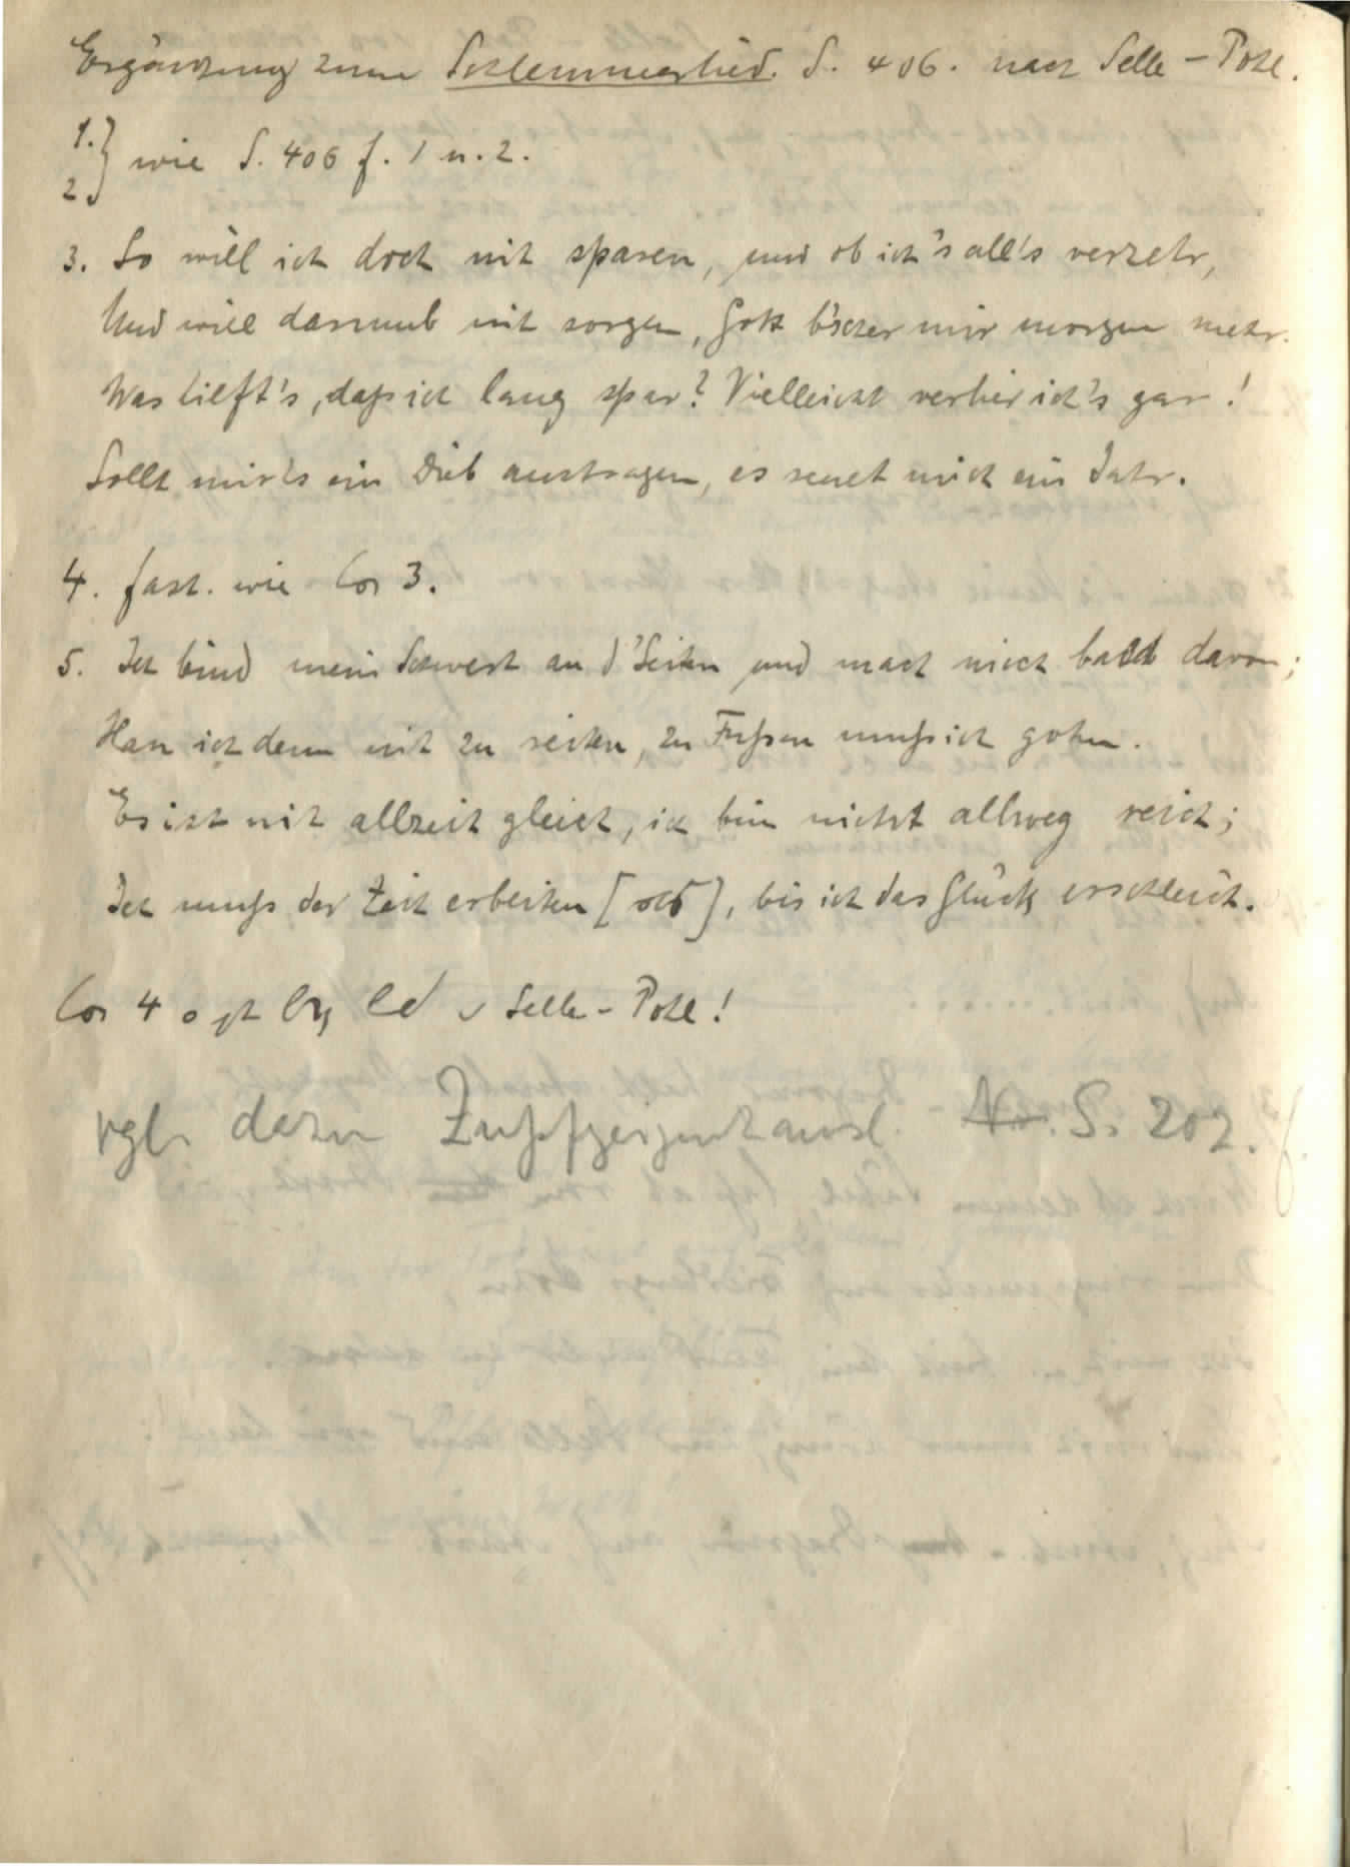 Ergänzung zum Schlemmerlied. S. 406. nach Selle - Pohl.
1.} wie S. 406 f. 1 u. 2.
2.
3. So will ich doch nit sparen, und ob ich's all's verzehr,
Und will darumb nit sorgen, Gott b'scher mir morgen mehr.
Was hilft's, daß ich lang spar? Vielleicht verlier ich's gar!
Sollt mir's ein Dieb austragen, es reuet mich ein Jahr.
4. fast. wie 3.
5. Ich bind mein Schwert an d'Seiten und mach mich bald davon;
Han ich denn nit zu reiten, zu Fußen muß ich gohn.
Es ist nit allzeit gleich, ich bin nicht allweg reich;
Ich muß der Zeit erbeiten, bis ich das Glück erschleich.
4 Selle - Pohl!
vgl. dazu Zupfgeigenhansl. Nr. S. 202.